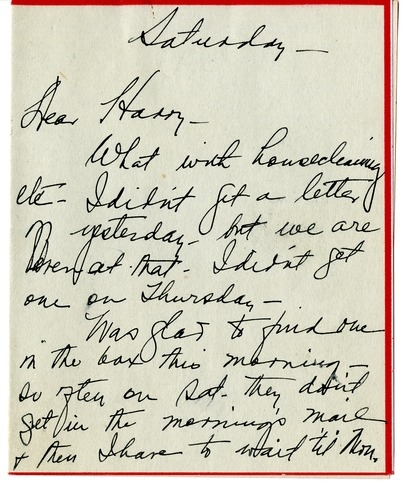 Saturday —
Dear Harry —
What with housecleaning
etc - I didn't get a letter
yesterday - but we are
even at that - I didn't get
one on Thursday —
Was glad to find one
in the box this morning —
so often on Sat. they don't
get in the morning's mail
+ then I have to wait 'til Mon.